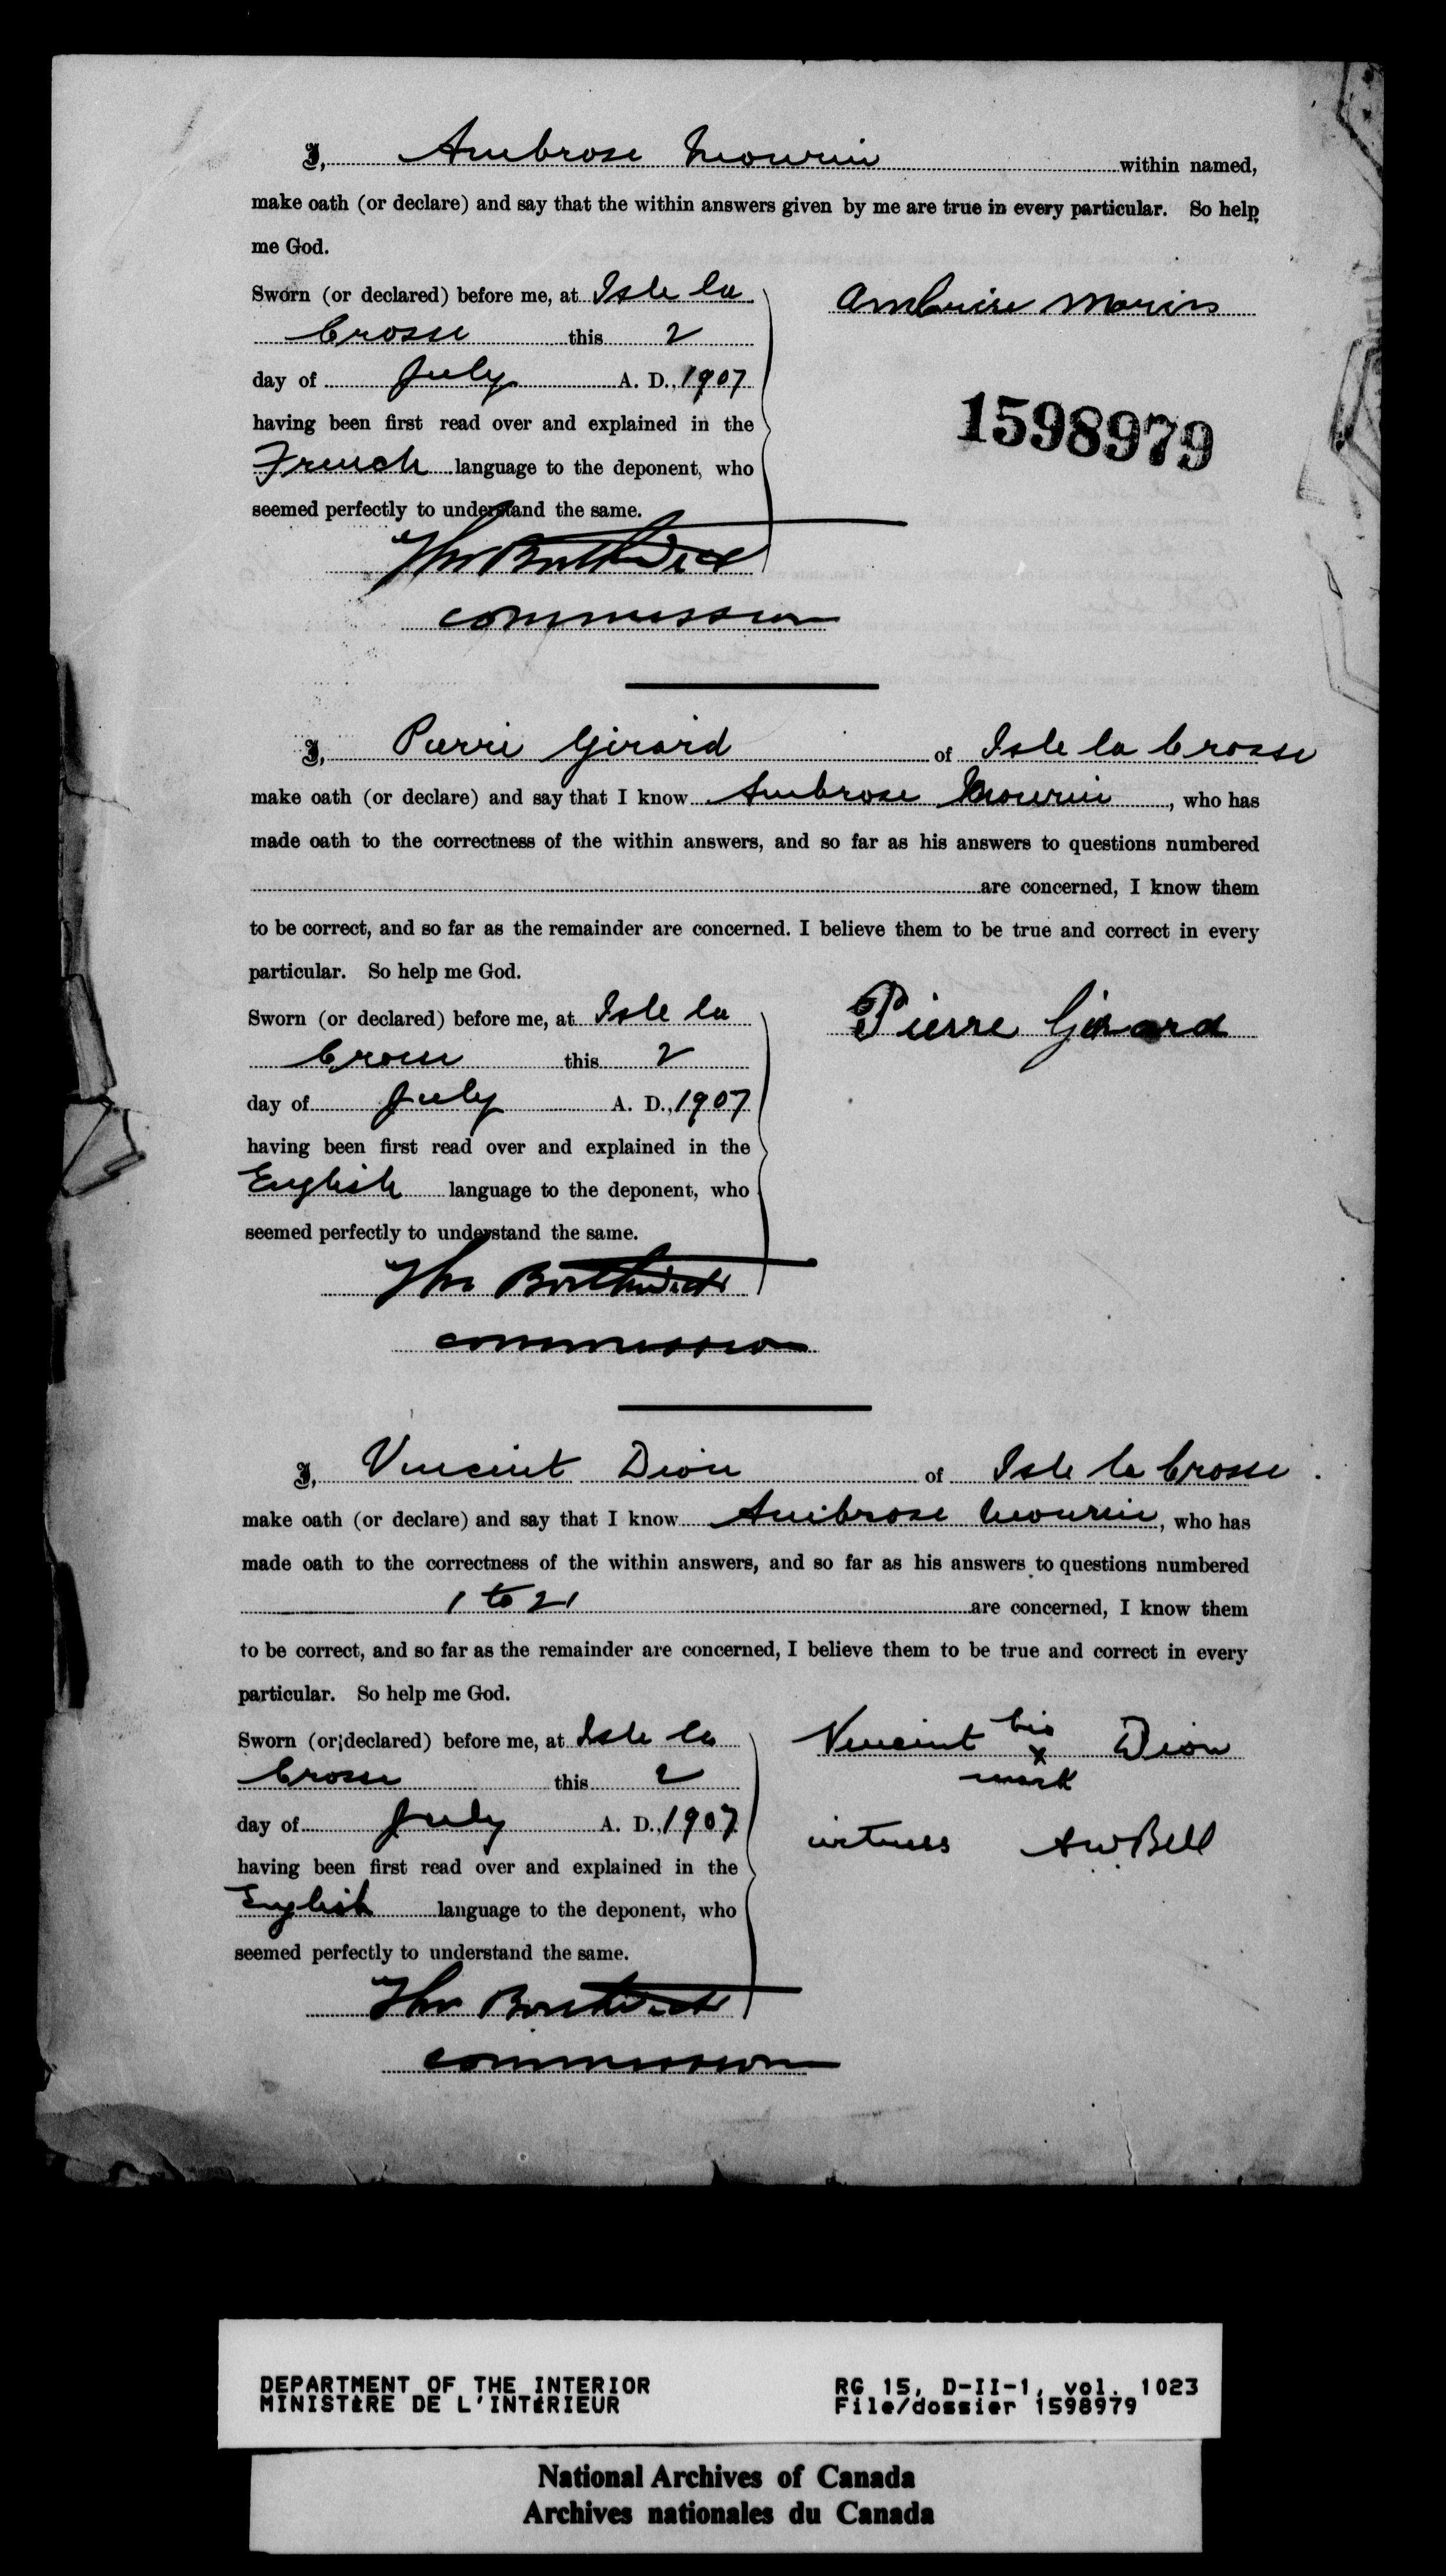 I, Ambrose Mourin within named,
make oath (or declare) and say that the within answers given by me are true in every particular. So help
me God.
Sworn (or declared) before me, at Isle la
Crosse this 2
day of July A. D., 1907
having been first read over and explained in the
French language to the deponent, who
seemed perfectly to understand the same.
Ambroise Morin
1598979
Thos Borthwick
commission
I, Pierre Girard of Isle la Crosse
make oath (or declare) and say that I know Ambrose Mourin, who has
made oath to the correctness of the within answers, and so far as his answers to questions numbered
are concerned, I know them
to be correct, and so far as the remainder are concerned. I believe them to be true and correct in every
particular. So help me God.
Sworn (or declared) before me, at Isle la
Crosse this 2
day of July A. D., 1907
having been first read over and explained in the
English language to the deponent, who
seemed perfectly to understand the same.
Pierre Girard
Thos Borthwick
commission
I, Vincent Dion of Isle la Crosse.
make oath (or declare) and say that I know Ambrose Mourin, who has
made oath to the correctness of the within answers, and so far as his answers to questions numbered
1 to 21 are concerned, I know them
to be correct, and so far as the remainder are concerned, I believe them to be true and correct in every
particular. So help me God.
Sworn (or declared) before me, at Isle la
Crosse this 2
day of July A. D., 1907
having been first read over and explained in the
English language to the deponent, who
seemed perfectly to understand the same.
Vincent his x mark Dion
witness A W Bell
Thos Borthwick
commission
DEPARTMENT OF THE INTERIOR
MINISTÈRE DE L'INTÉRIEUR
RG 15, D-II-1, vol. 1023
File/dossier 1598979
National Archives of Canada
Archives nationales du Canada